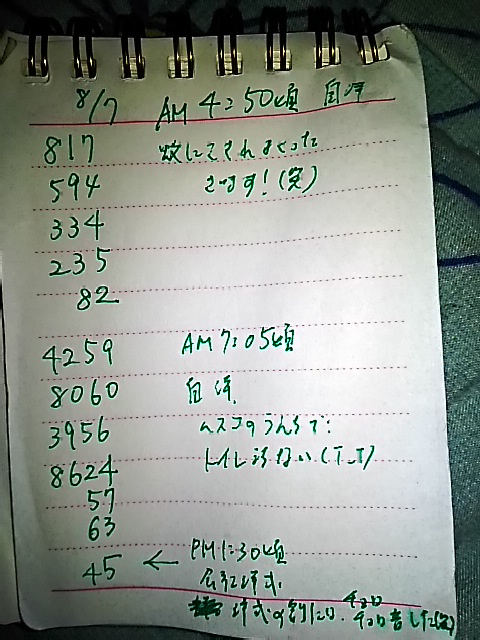 8/7 AM 4:50頃 自洋
817 蚊にさされまくった
594 さます!(笑)
334
235
82
4259 AM 7:05頃
8060 自洋
3956 ムスコのうんちで
8624 トイレ(T_T)
57
63
45 ← PM 1:30頃
洋式
洋式の割に チョロチョロ音した(笑)